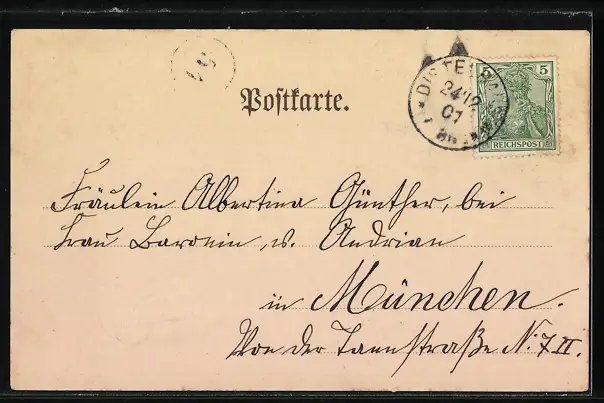 Postkarte.
5 5
REICHSPOST
24 12
01
Fräulein Albertina Günther, bei
Frau Baronin v. Andrian
in München.
Von der Tannstraße N. 7 II.